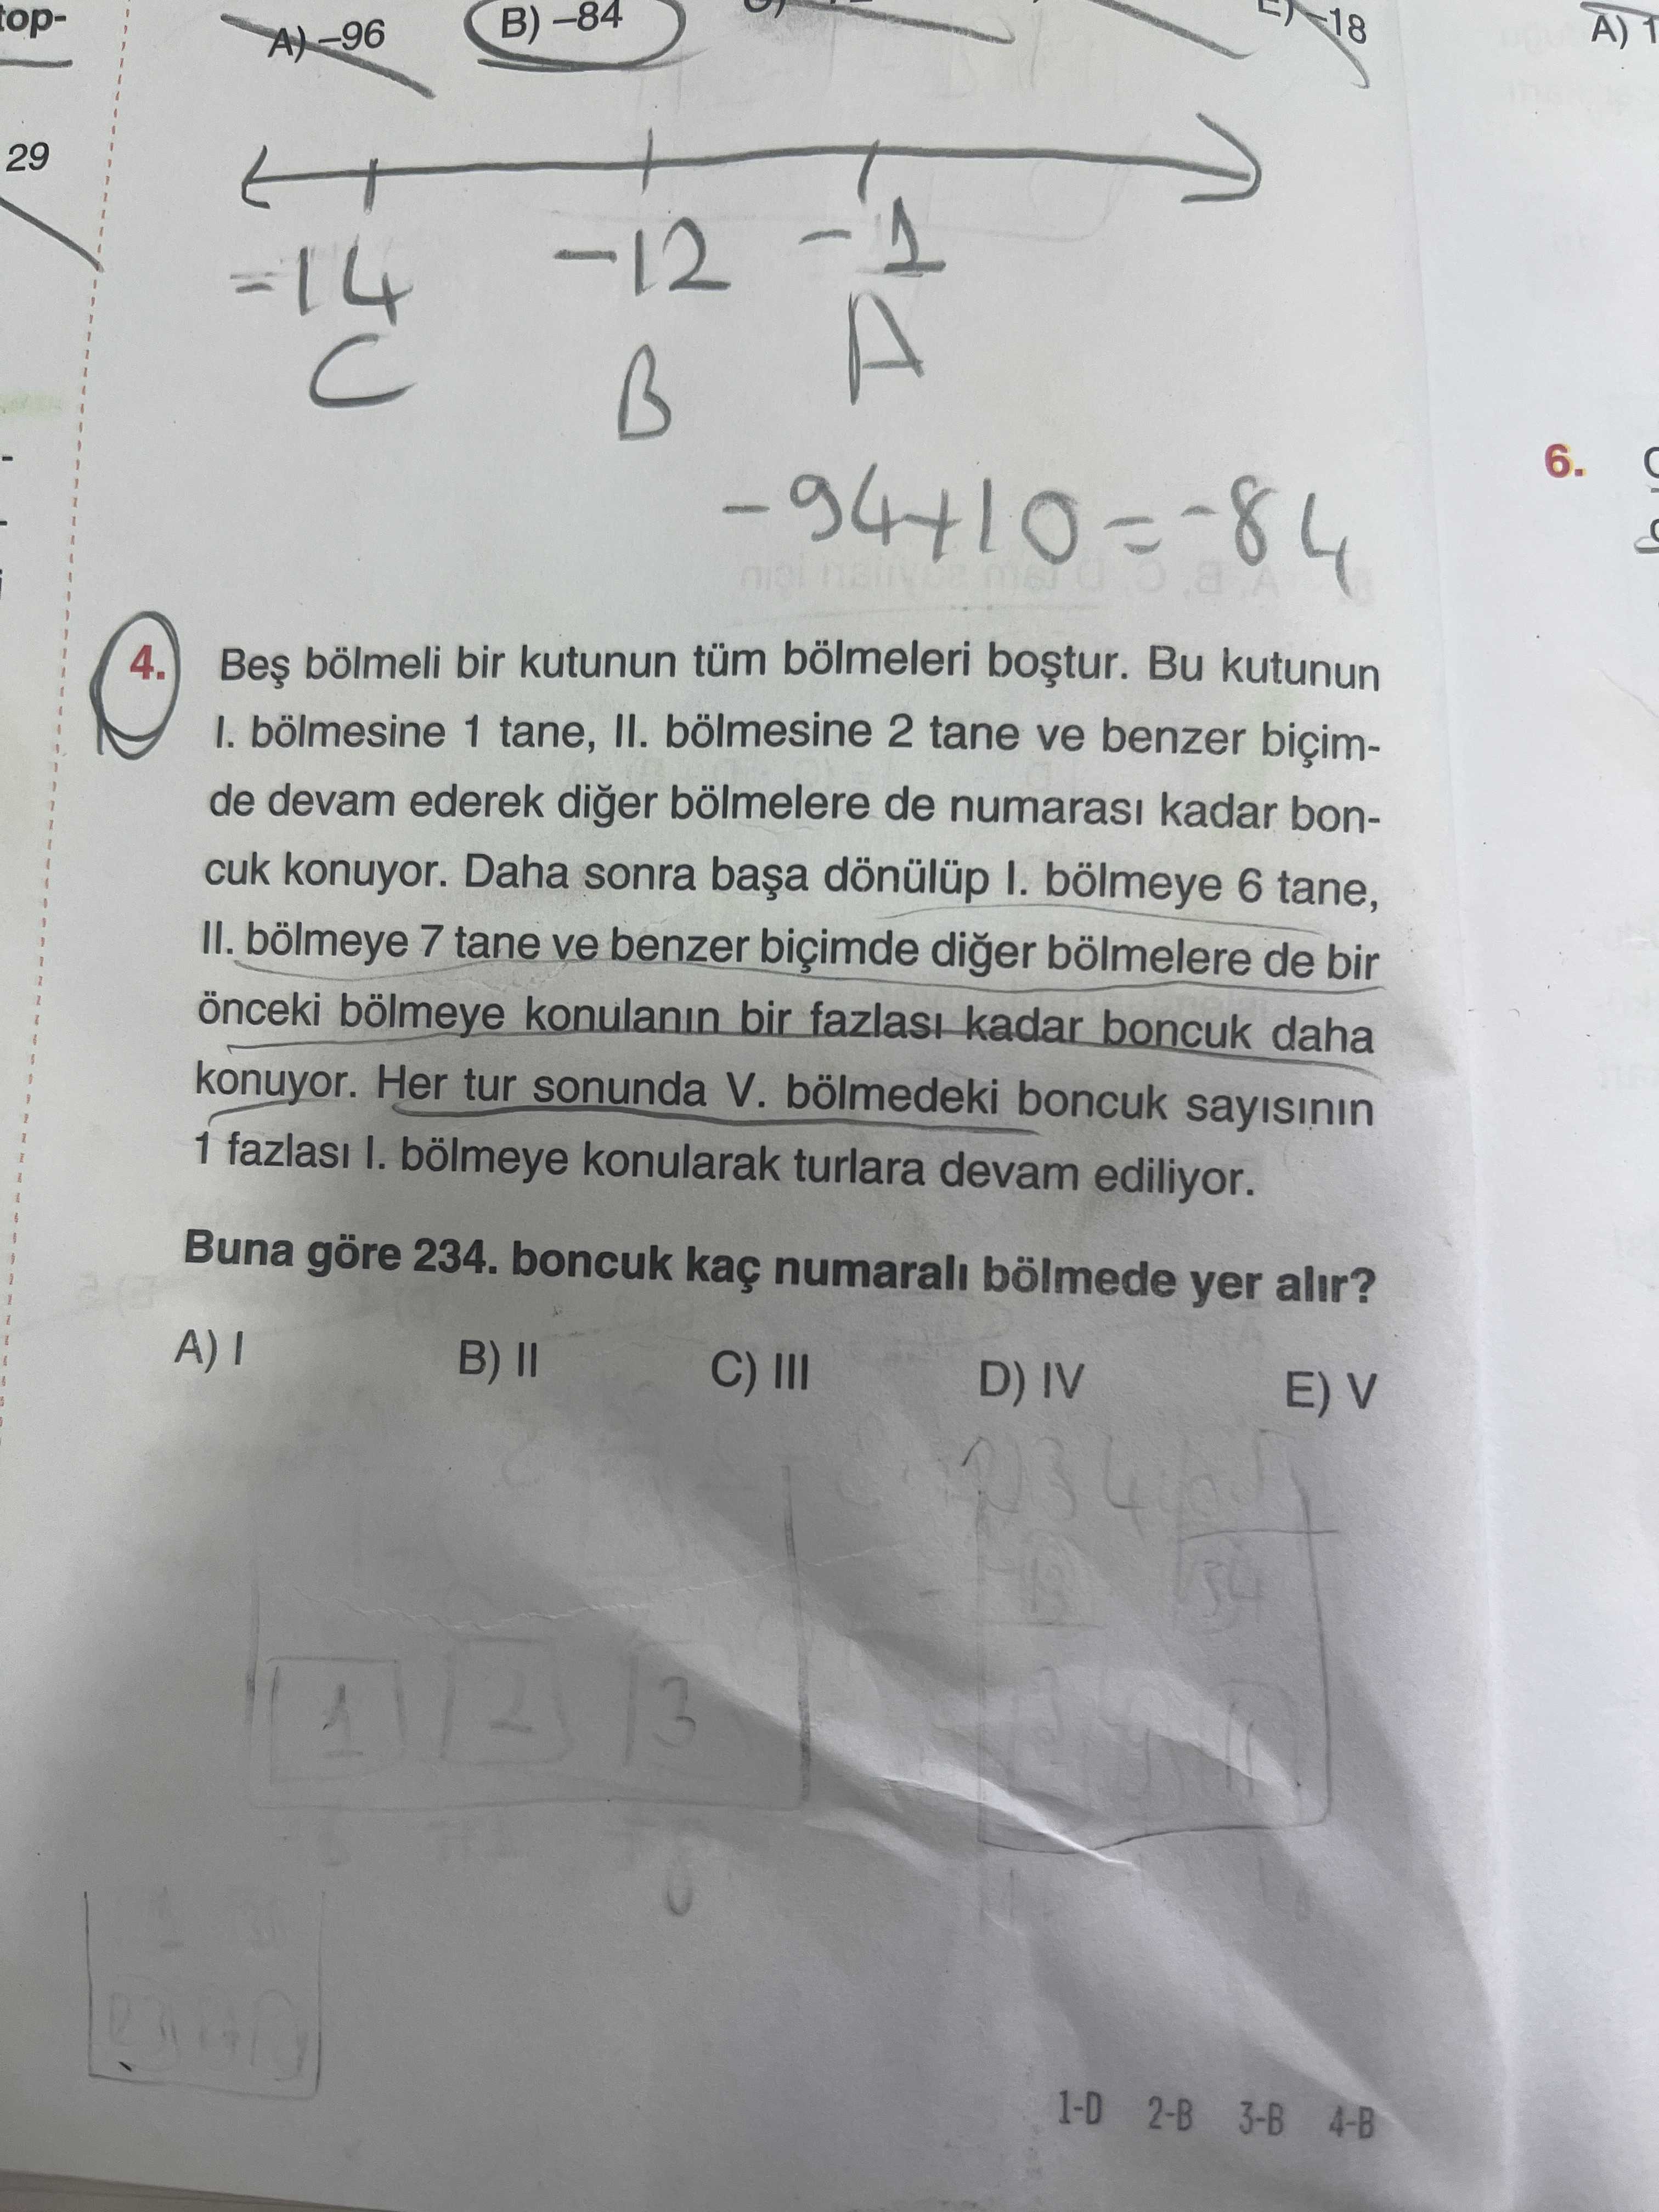 top-
A) –96
B) –84
–18
A) 1
29
=14
-12
-1
C
B
A
-94+10=-84
6.
4. Beş bölmeli bir kutunun tüm bölmeleri boştur. Bu kutunun
I. bölmesine 1 tane, II. bölmesine 2 tane ve benzer biçim-
de devam ederek diğer bölmelere de numarası kadar bon-
cuk konuyor. Daha sonra başa dönülüp I. bölmeye 6 tane,
II. bölmeye 7 tane ve benzer biçimde diğer bölmelere de bir
önceki bölmeye konulanın bir fazlası kadar boncuk daha
konuyor. Her tur sonunda V. bölmedeki boncuk sayısının
1 fazlası I. bölmeye konularak turlara devam ediliyor.
Buna göre 234. boncuk kaç numaralı bölmede yer alır?
A) I
B) II
C) III
D) IV
E) V
234
1
2
3
1-D 2-B 3-B 4-B